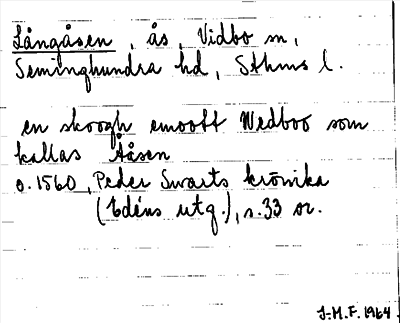 Långåsen, ås, Vidbo sn,
Seminghundra hd, Sthms l.
en skoogh emoott Wedboo som
kallas Ååsen
o. 1560, Peder Swarts krönika
(Edéns utg.), s. 33 or.
J.M.F. 1964